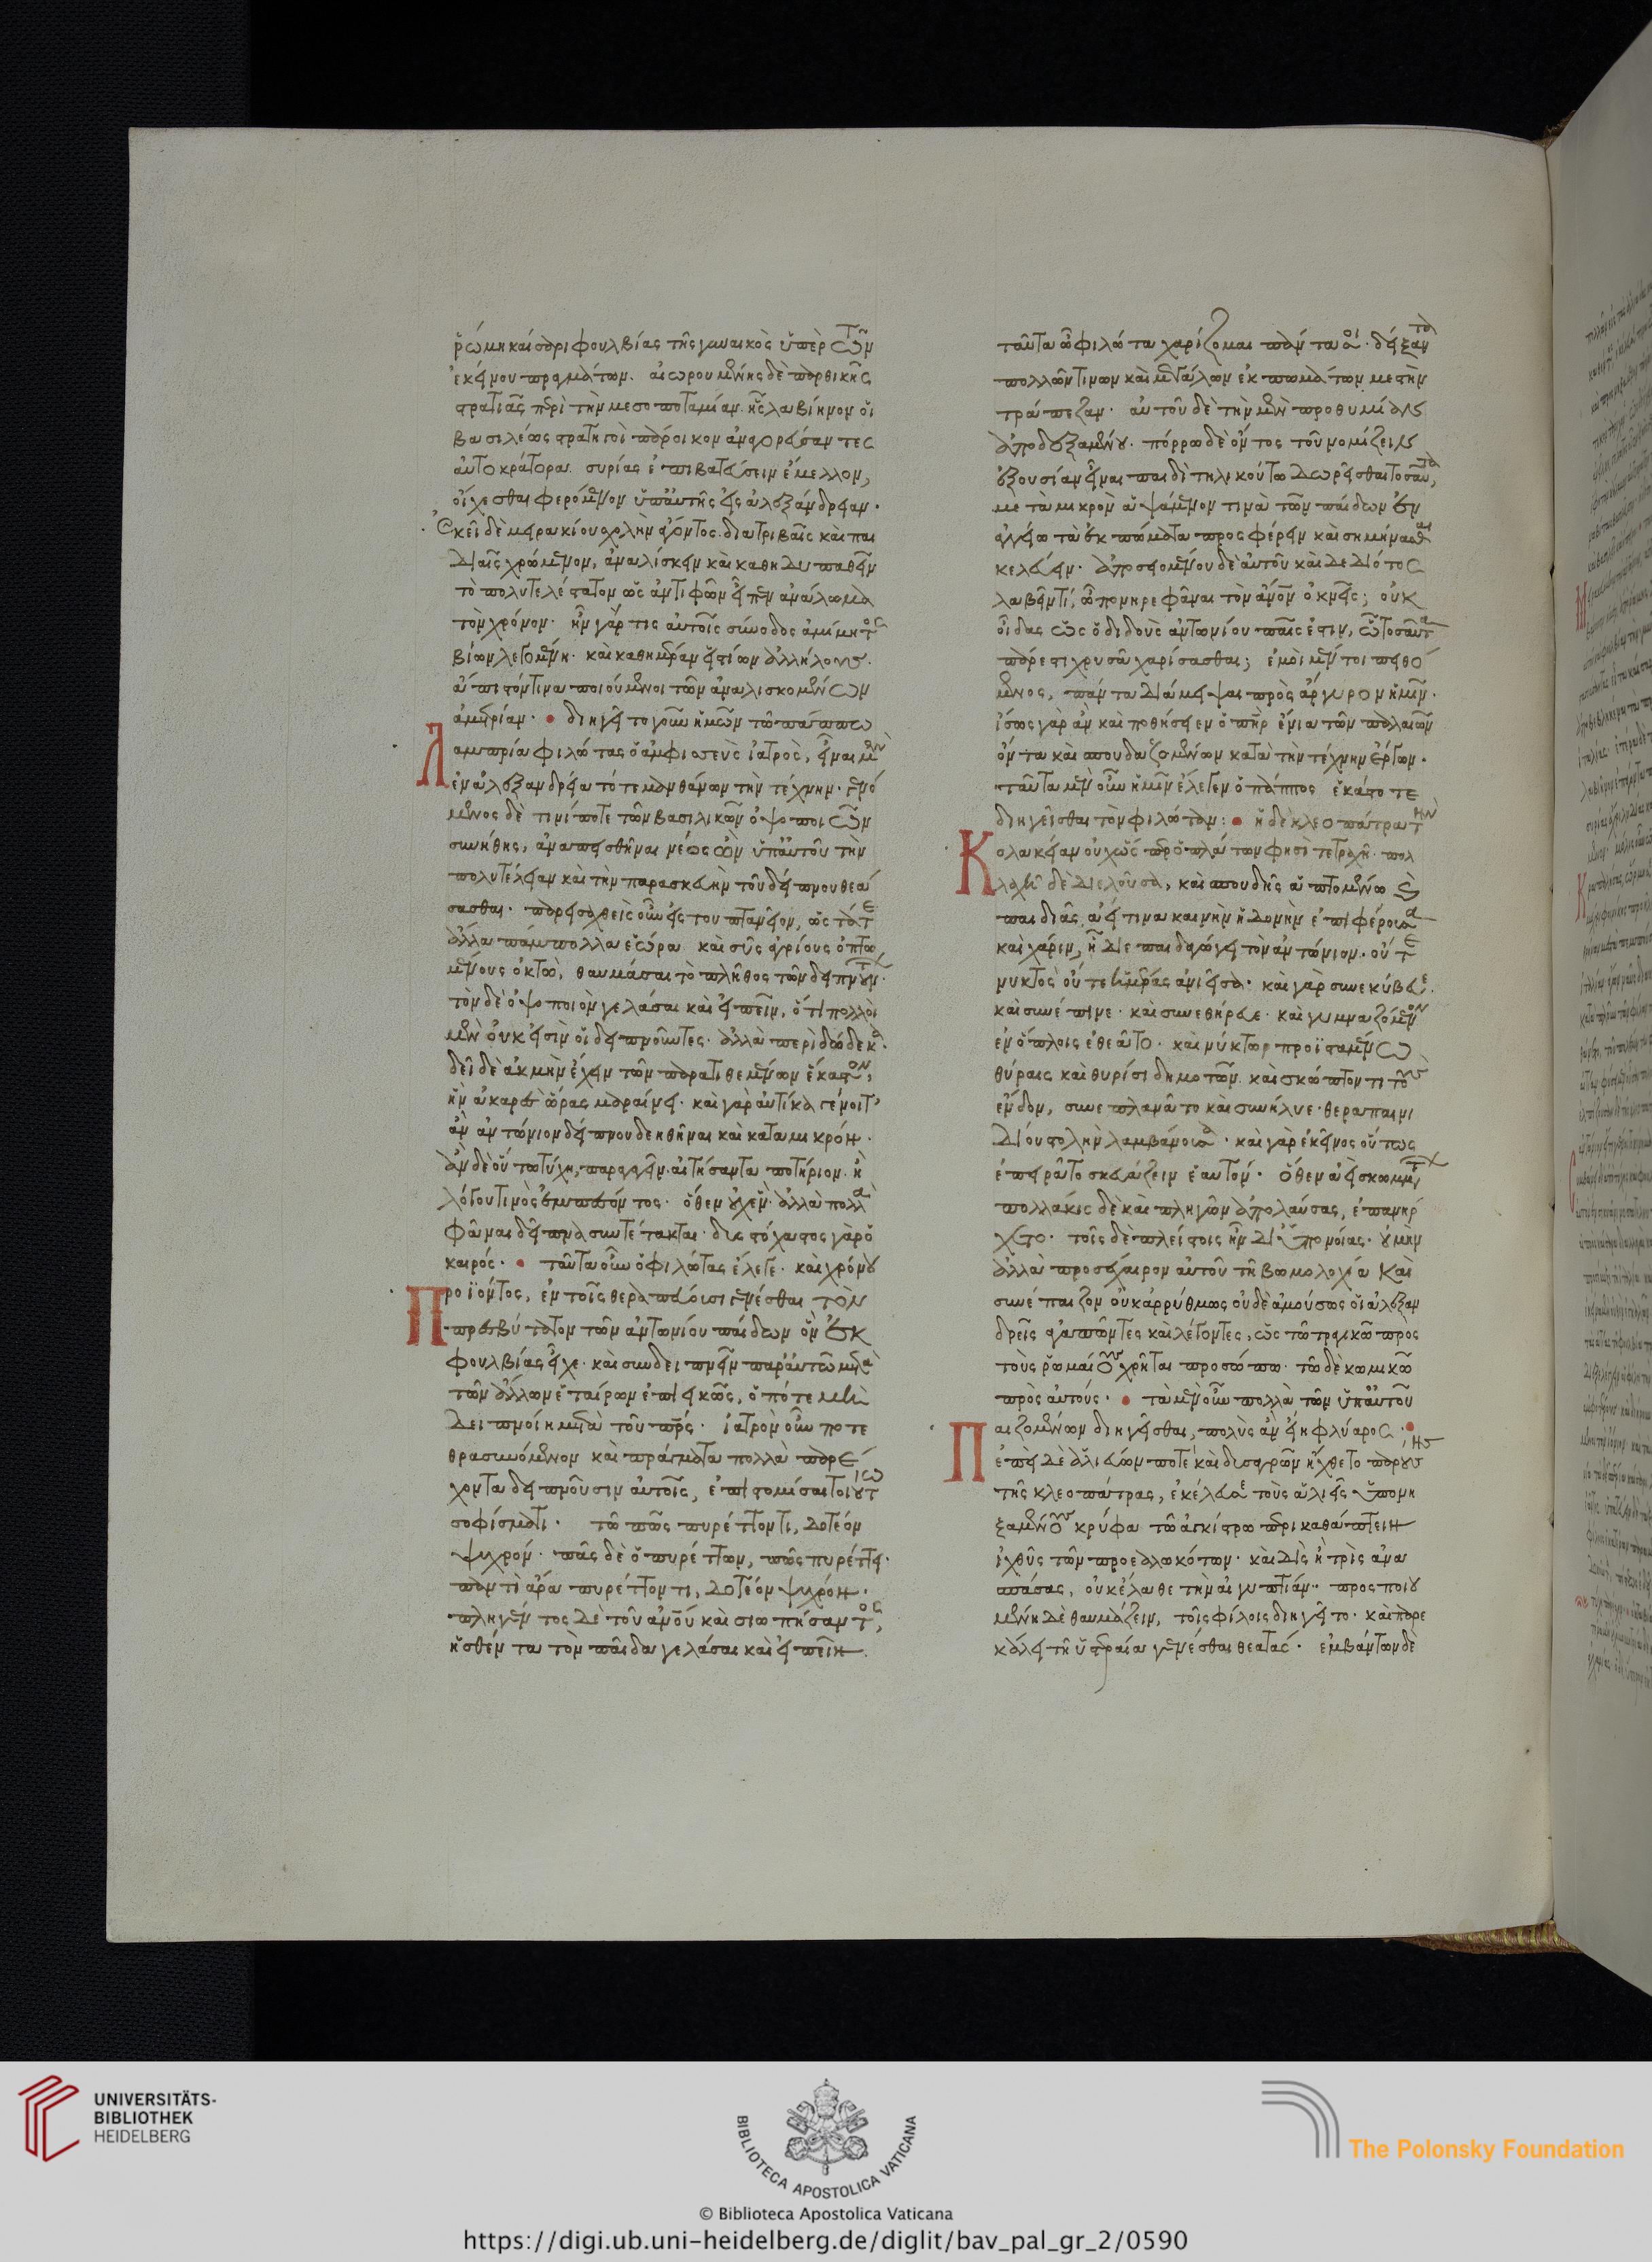 ῥώμη καίσαρι φουλβίας τῆς γυναικὸς ὑπὲρ τῶν
ἐκείνου πραγμάτων. αἰωρουμένης δὲ παρθικῆς
στρατιᾶς περὶ τὴν μεσοποταμίαν. ἧς λαβίηνον οἱ
βασιλέως στρατηγοὶ πάροικον ἀναγορεύσαντες
αὐτοκράτορα. συρίας ἐπιβατεύσειν ἔμελλον,
οἴχεσθαι φερόμενον ὑπ' αὐτῆς εἰς ἀλεξάνδρειαν.
Ἐκεῖ δὲ μειρακίου σχολὴν ἄγοντος. διατριβαῖς καὶ παι
διαῖς χρώμενον, ἀναλίσκειν καὶ καθηδυπαθεῖν
τὸ πολυτελέστατον ὡς ἀντιφῶν εἶπεν ἀνάλωμα
τὸν χρόνον. ἦν γάρ τις αὐτοῖς σύνοδος ἀμίμητος
βίων λεγομένη. καὶ καθημέραν εἱστίων ἀλλήλους.
ἄπιστόν τινα ποιούμενοι τῶν ἀναλισκομένων
ἀμετρίαν. διηγεῖτο γοῦν ἡμῶν τῶ πάππω
λαμπρία φιλώτας ὁ ἀμφισσεὺς ἰατρὸς, εἶναι μὲν
ἐν ἀλεξανδρεία τότε μανθάνων τὴν τέχνην. γενό
μενος δέ τινί ποτε τῶν βασιλικῶν ὀψοποιῶν
συνήθης, ἀναπεισθῆναι νέος ὢν ὑπ' αὐτοῦ τὴν
πολυτέλειαν καὶ τὴν παρασκευὴν τοῦ δείπνου θεά
σασθαι. παρεισαχθεὶς οὖν εἰς τουπτανεῖον, ὡς τά τε
ἄλλα πάμπολλα ἑώρα. καὶ σῦς ἀγρίους ὀπτω
μένους ὀκτὼ, θαυμάσαι τὸ πλῆθος τῶν δειπνούντων.
τὸν δὲ ὀψοποιὸν γελάσαι καὶ εἰπεῖν, ὅτι πολλοὶ
μὲν οὐκ εἰσὶν οἱ δειπνοῦντες. ἀλλὰ περὶ δώδεκα.
δεῖ δὲ ἀκμὴν ἔχειν τῶν παρατιθεμένων ἕκαστον,
ἣν ἀκαρὲς ὥρας μαραίνει. καὶ γὰρ αὐτίκα γένοιτ'
ἂν ἀντώνιον δείπνου δεηθῆναι καὶ κατὰ μικρόν.
ἂν δὲ οὕτω τύχη, παραγαγεῖν. αἰτήσαντα ποτήριον. ἢ
λόγου τινὸς ἐμπεσόντος. ὅθεν οὐχ ἕν. ἀλλὰ πολλὰ
φᾶναι δεῖπνα συντέτακται. δυστόχαστος γὰρ ὁ
καιρός. ταῦτα οὖν ὁ φιλώτας ἔλεγε. καὶ χρόνου
προϊόντος, ἐν τοῖς θεραπεύουσι γενέσθαι τὸν
πρεσβύτατον τῶν ἀντωνίου παίδων ὃν ἐκ
φουλβίας εἶχε. καὶ συνδειπνεῖν παρ' αὐτῶ μετὰ
τῶν ἄλλων ἑταίρων ἐπιεικῶς, ὁπότε μὴ
δειπνοίη μετὰ τοῦ πατρός. ἰατρὸν οὖν ποτε
θρασυνόμενον καὶ πράγματα πολλὰ παρέ
χοντα δειπνοῦσιν αὐτοῖς, ἐπιστομίσαι τοιούτω
σοφίσματι. τῶ πῶς πυρέττοντι, δοτέον
ψυχρόν. πᾶς δὲ ὁ πυρέττων, πῶς πυρέττει.
παντὶ ἄρα πυρέττοντι, δοτέον ψυχρόν.
πληγέντος δὲ τοῦ ἀνοῦ καὶ σιωπήσαντος,
ἡσθέντα τὸν παῖδα γελάσαι καὶ εἰπεῖν.
ταῦτα ὦ φιλώτα χαρίζομαι πάντα σοί. δείξαντα
πολλῶν τινων καὶ μεγάλων ἐκπωμάτων μεστὴν
τράπεζαν. αὐτοῦ δὲ τὴν μὲν προθυμίαν
ἀποδεξαμένου. πόρρω δὲ ὄντος τοῦ νομίζειν
ἐξουσίαν εἶναι παιδὶ τηλικούτω δωρεῖσθαι τοσαῦτα,
μετὰ μικρὸν ἀψάμενον τινὰ τῶν παίδων ἐν
ἀγγείω τὰ ἐκπώματα προσφέρειν καὶ σημήνασθαι
κελεύειν. ἀφοσιουμένου δὲ αὐτοῦ καὶ δεδιότος
λαβεῖν τί, ὦ πονηρε φᾶναι τὸν ἄνον ὀκνεῖς; οὐκ
οἶδας ὡς ὁ διδοὺς ἀντωνίου παῖς ἐστιν, ὧ τοσαῦτα
πάρεστι χρυσᾶ χαρίσασθαι; ἐμοὶ μέν τοι πειθό
μενος, πάντα διάμειψαι πρὸς ἀργύριον ἡμῖν.
ἴσως γὰρ ἂν καὶ ποθήσειεν ὁ πατὴρ ἔνια τῶν παλαιῶν
ὄντα καὶ σπουδαζομένων κατὰ τὴν τέχνην ἔργων.
ταῦτα μὲν οὖν ἡμῖν ἔλεγεν ὁ πάππος ἑκάστοτε
διηγεῖσθαι τὸν φιλώταν: ἡ δὲ κλεοπάτρα τὴν
κολακείαν οὐχ ὡς πρὸ πλάτων φησὶ τετραχῆ. πολ
λαχῆ δὲ διελοῦσα, καὶ σπουδῆς ἁπτομένω
παιδιᾶς, ἀεί τινα καινὴν ἡδονὴν ἐπιφέρουσα
καὶ χάριν, διεπαιδαγώγει τὸν ἀντώνιον. οὔτε
νυκτὸς οὔτε ἡμέρας ἀνιεῖσα. καὶ γὰρ συνεκύβευε.
καὶ συνέπινε. καὶ συνεθήρευε. καὶ γυμναζόμενον
ἐν ὅπλοις ἐθεᾶτο. καὶ νύκτωρ προϊσταμένω
θύραις καὶ θυρίσι δημοτῶν. καὶ σκώπτοντι τοὺς
ἔνδον, συνεπλανᾶτο καὶ συνήλυε. θεραπαινι
δίου στολὴν λαμβάνουσα. καὶ γὰρ ἐκεῖνος οὕτως
ἐπειρᾶτο σκευάζειν ἑαυτόν. ὅθεν ἀεὶ σκωμμάτων
πολλάκις δὲ καὶ πληγῶν ἀπολαύσας, ἐπανήρ
χετο. τοῖς δὲ πλείστοις ἦν δι' ὑπονοίας. οὐ μὴν
ἀλλὰ προσέχαιρον αὐτοῦ τῆ βωμολοχία καὶ
συνέπαιζον οὐκ ἀρρύθμως οὐδὲ ἀμούσως οἱ ἀλεξαν
δρεῖς ἀγαπῶντες καὶ λέγοντες, ὡς τῶ τραγικῶ πρὸς
τοὺς ῥωμαίους χρῆται προσώπω. τῶ δὲ κωμικῶ
πρὸς αὐτούς. τὰ μὲν οὖν πολλὰ τῶν ὑπ' αὐτοῦ
παιζομένων διηγεῖσθαι, πολὺς ἂν εἴη φλύαρος.
ἐπεὶ δὲ ἁλιεύων ποτὲ καὶ δυσαγρῶν ἤχθετο παρούσης
τῆς κλεοπάτρας, ἐκέλευσε τοὺς ἁλιεῖς ὑπονη
ξαμένους κρύφα τῶ ἀγκίστρω περικαθάπτειν
ἰχθῦς τῶν προεαλωκότων. καὶ δὶς ἢ τρὶς ἀνα
σπάσας, οὐκ ἔλαθε τὴν αἰγυπτίαν. προσποιου
μένη δὲ θαυμάζειν, τοῖς φίλοις διηγεῖτο. καὶ παρε
κάλει τῆ ὑστεραία γενέσθαι θεατάς. ἐμβάντων δὲ
UNIVERSITÄTS-
BIBLIOTHEK
HEIDELBERG
BIBLIOTECA APOSTOLICA VATICANA
The Polonsky Foundation
© Biblioteca Apostolica Vaticana
https://digi.ub.uni-heidelberg.de/diglit/bav_pal_gr_2/0590